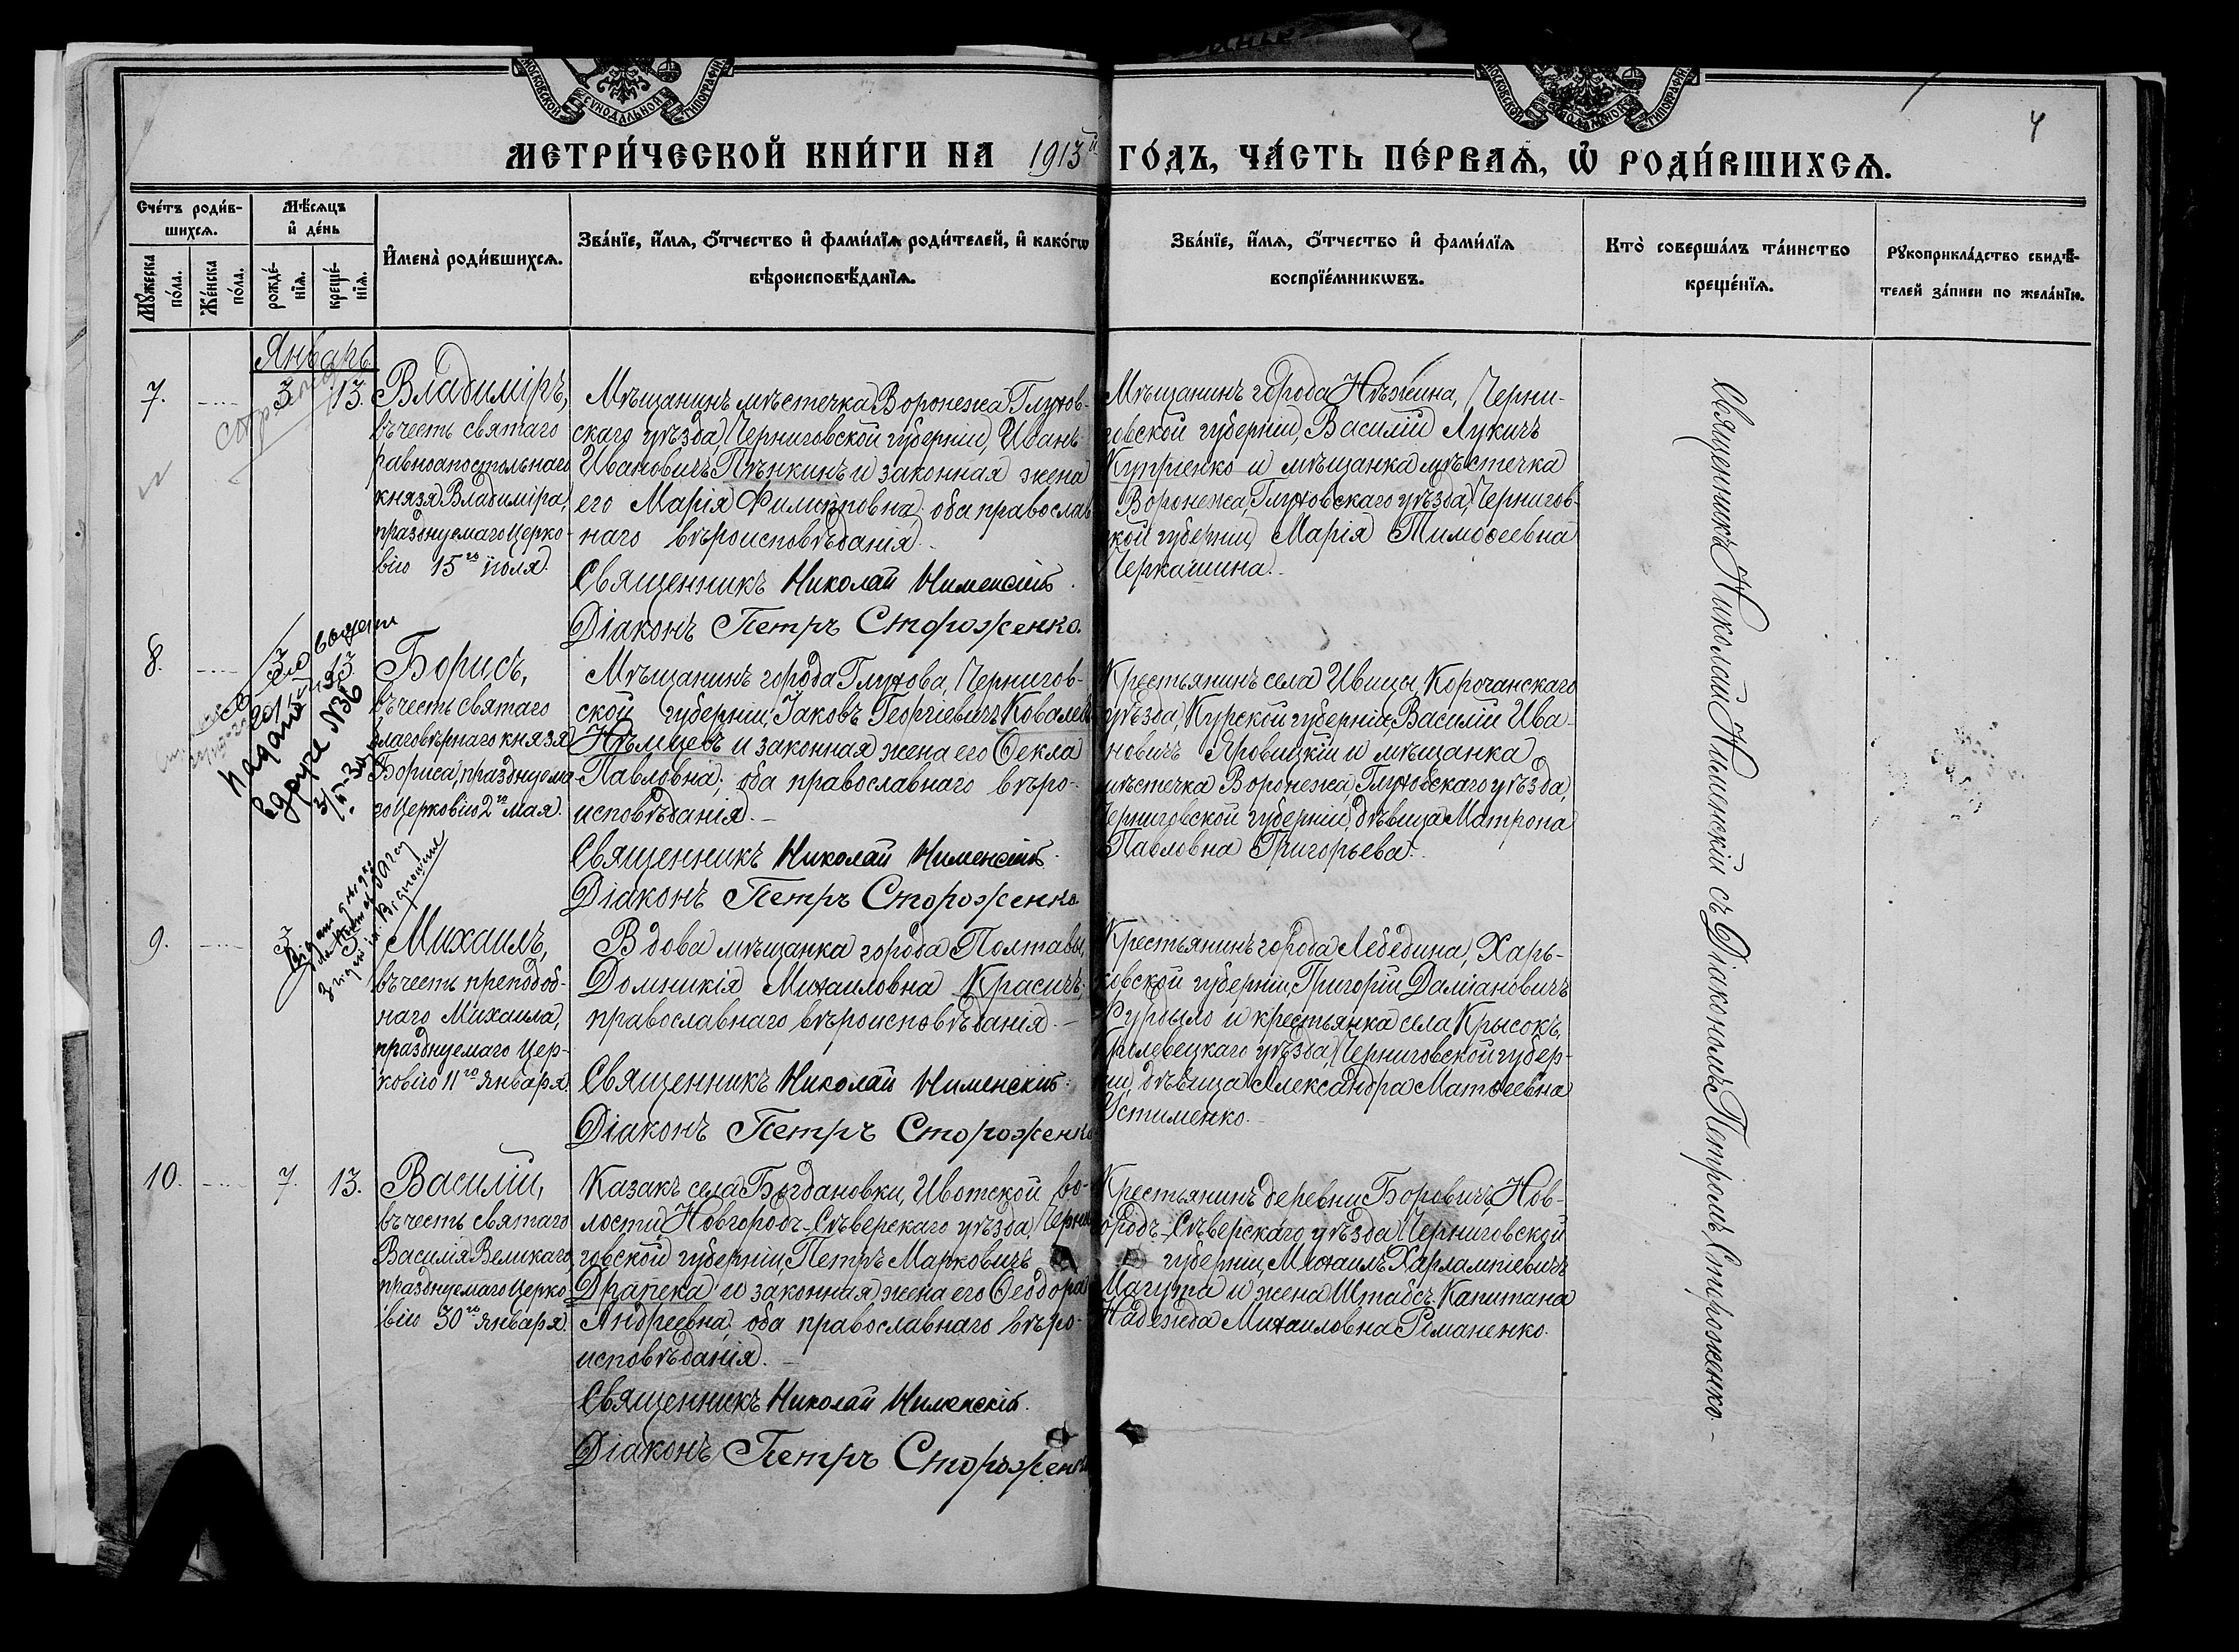 МОСКОВСКОЙ СѴНОДАЛЬНОЙ ТИПОГРАФІИ
МОСКОВСКОЙ СѴНОДАЛЬНОЙ ТИПОГРАФІИ
4
МЕТРИ́ЧЕСКОЙ КНИ́ГИ НА 1913й ГО́ДЪ, ЧА́СТЬ ПЕ́РВАѦ, Ѡ҆ РОДИ́ВШИХСѦ.
Сче́тъ роди́в-
шихсѧ.
Мꙋ́жеска
по́ла.
Же́нска
по́ла.
Мѣ́сѧцъ
и҆ де́нь
рожде́-
нїѧ.
креще́-
нїѧ.
И҆мена̀ роди́вшихсѧ.
Зва́нїе, и҆́мѧ, ѻ҆́тчество и҆ фами́лїѧ роди́телей, и҆ како́гѡ
вѣроисповѣ́данїѧ.
Зва́нїе, и҆́мѧ, ѻ҆́тчество и҆ фами́лїѧ
воспрїе́мникѡвъ.
Кто̀ соверша́лъ та́инство
креще́нїѧ.
Рꙋкоприкла́дство свидѣ́-
телей за́писи по жела́нїю.
Январь
7. 3 13.
Владиміръ,
въ честь святаго
равноапостольнаго
князя Владиміра,
празднуемаго Церко-
вію 15го іюля.
Мѣщанинъ мѣстечка Воронежа Глухов-
скаго уѣзда Черниговской губерніи, Иванъ
Ивановичъ Пѣнкинъ и законная жена
его Марія Филипповна; оба православ
наго вѣроисповѣданія.
Священникъ Николай Нименскій.
Діаконъ Петръ Стороженко.
Мѣщанинъ города Нѣжина, Черни-
говской губерніи, Василій Лукичъ
Купріенко и мѣщанка мѣстечка
Воронежа, Глуховскаго уѣзда, Чернигов-
ской губерніи, Марія Тимоѳеевна
Черкашина.
8. 3 13
выдано
Борисъ,
въ честь святаго
благовѣрнаго князя
Бориса, празднуема-
го Церковію 2го мая.
Мѣщанинъ города Глухова, Чернигов-
ской губерніи, Іаковъ Георгіевичъ Ковалевъ
Нѣмцевъ и законная жена его Ѳекла
Павловна; оба православнаго вѣро-
исповѣданія.
Священникъ Николай Нименскій.
Діаконъ Петръ Стороженко
Крестьянинъ села Ивицы, Корочанскаго
уѣзда, Курской губерніи, Василій Ива-
новичъ Яровицкій и мѣщанка
мѣстечка Воронежа, Глуховскаго уѣзда,
Черниговской губерніи, дѣвица Матрона
Павловна Григорьева.
9. 3
Михаилъ,
въ честь преподоб-
наго Михаила,
празднуемаго Цер-
ковію 11го января.
Вдова мѣщанка города Полтавы,
Домникія Михаиловна Красичъ,
православнаго вѣроисповѣданія.
Священникъ Николай Нименскій.
Діаконъ Петръ Стороженко
Крестьянинъ города Лебедина, Харь-
ковской губерніи, Григорій Даміановичъ
и крестьянка села Крысокъ,
Кролевецкаго уѣзда, Черниговской губер-
ніи, дѣвица Александра Матѳеевна
Устименко.
10. 7. 13.
Василій,
въ честь святаго
Василія Великаго,
празднуемаго Церко
вію 30го января.
Казакъ села Богдановки, Ивотской во-
лости, Новгородъ-Сѣверскаго уѣзда, Черни
говской губерніи, Петръ Марковичъ
Драпека и законная жена его Ѳеодора
Андреевна; оба православнаго вѣро-
исповѣданія.
Священникъ Николай Нименскій.
Діаконъ Петръ Стороженко
Крестьянинъ деревни Боровичъ, Нов-
городъ-Сѣверскаго уѣзда Черниговской
губерніи, Михаилъ Харлампіевичъ
Магута и жена Штабсъ-Капитана
Надежда Михаиловна Романенко.
Священникъ Николай Нименскій съ Діакономъ Петромъ Стороженко.